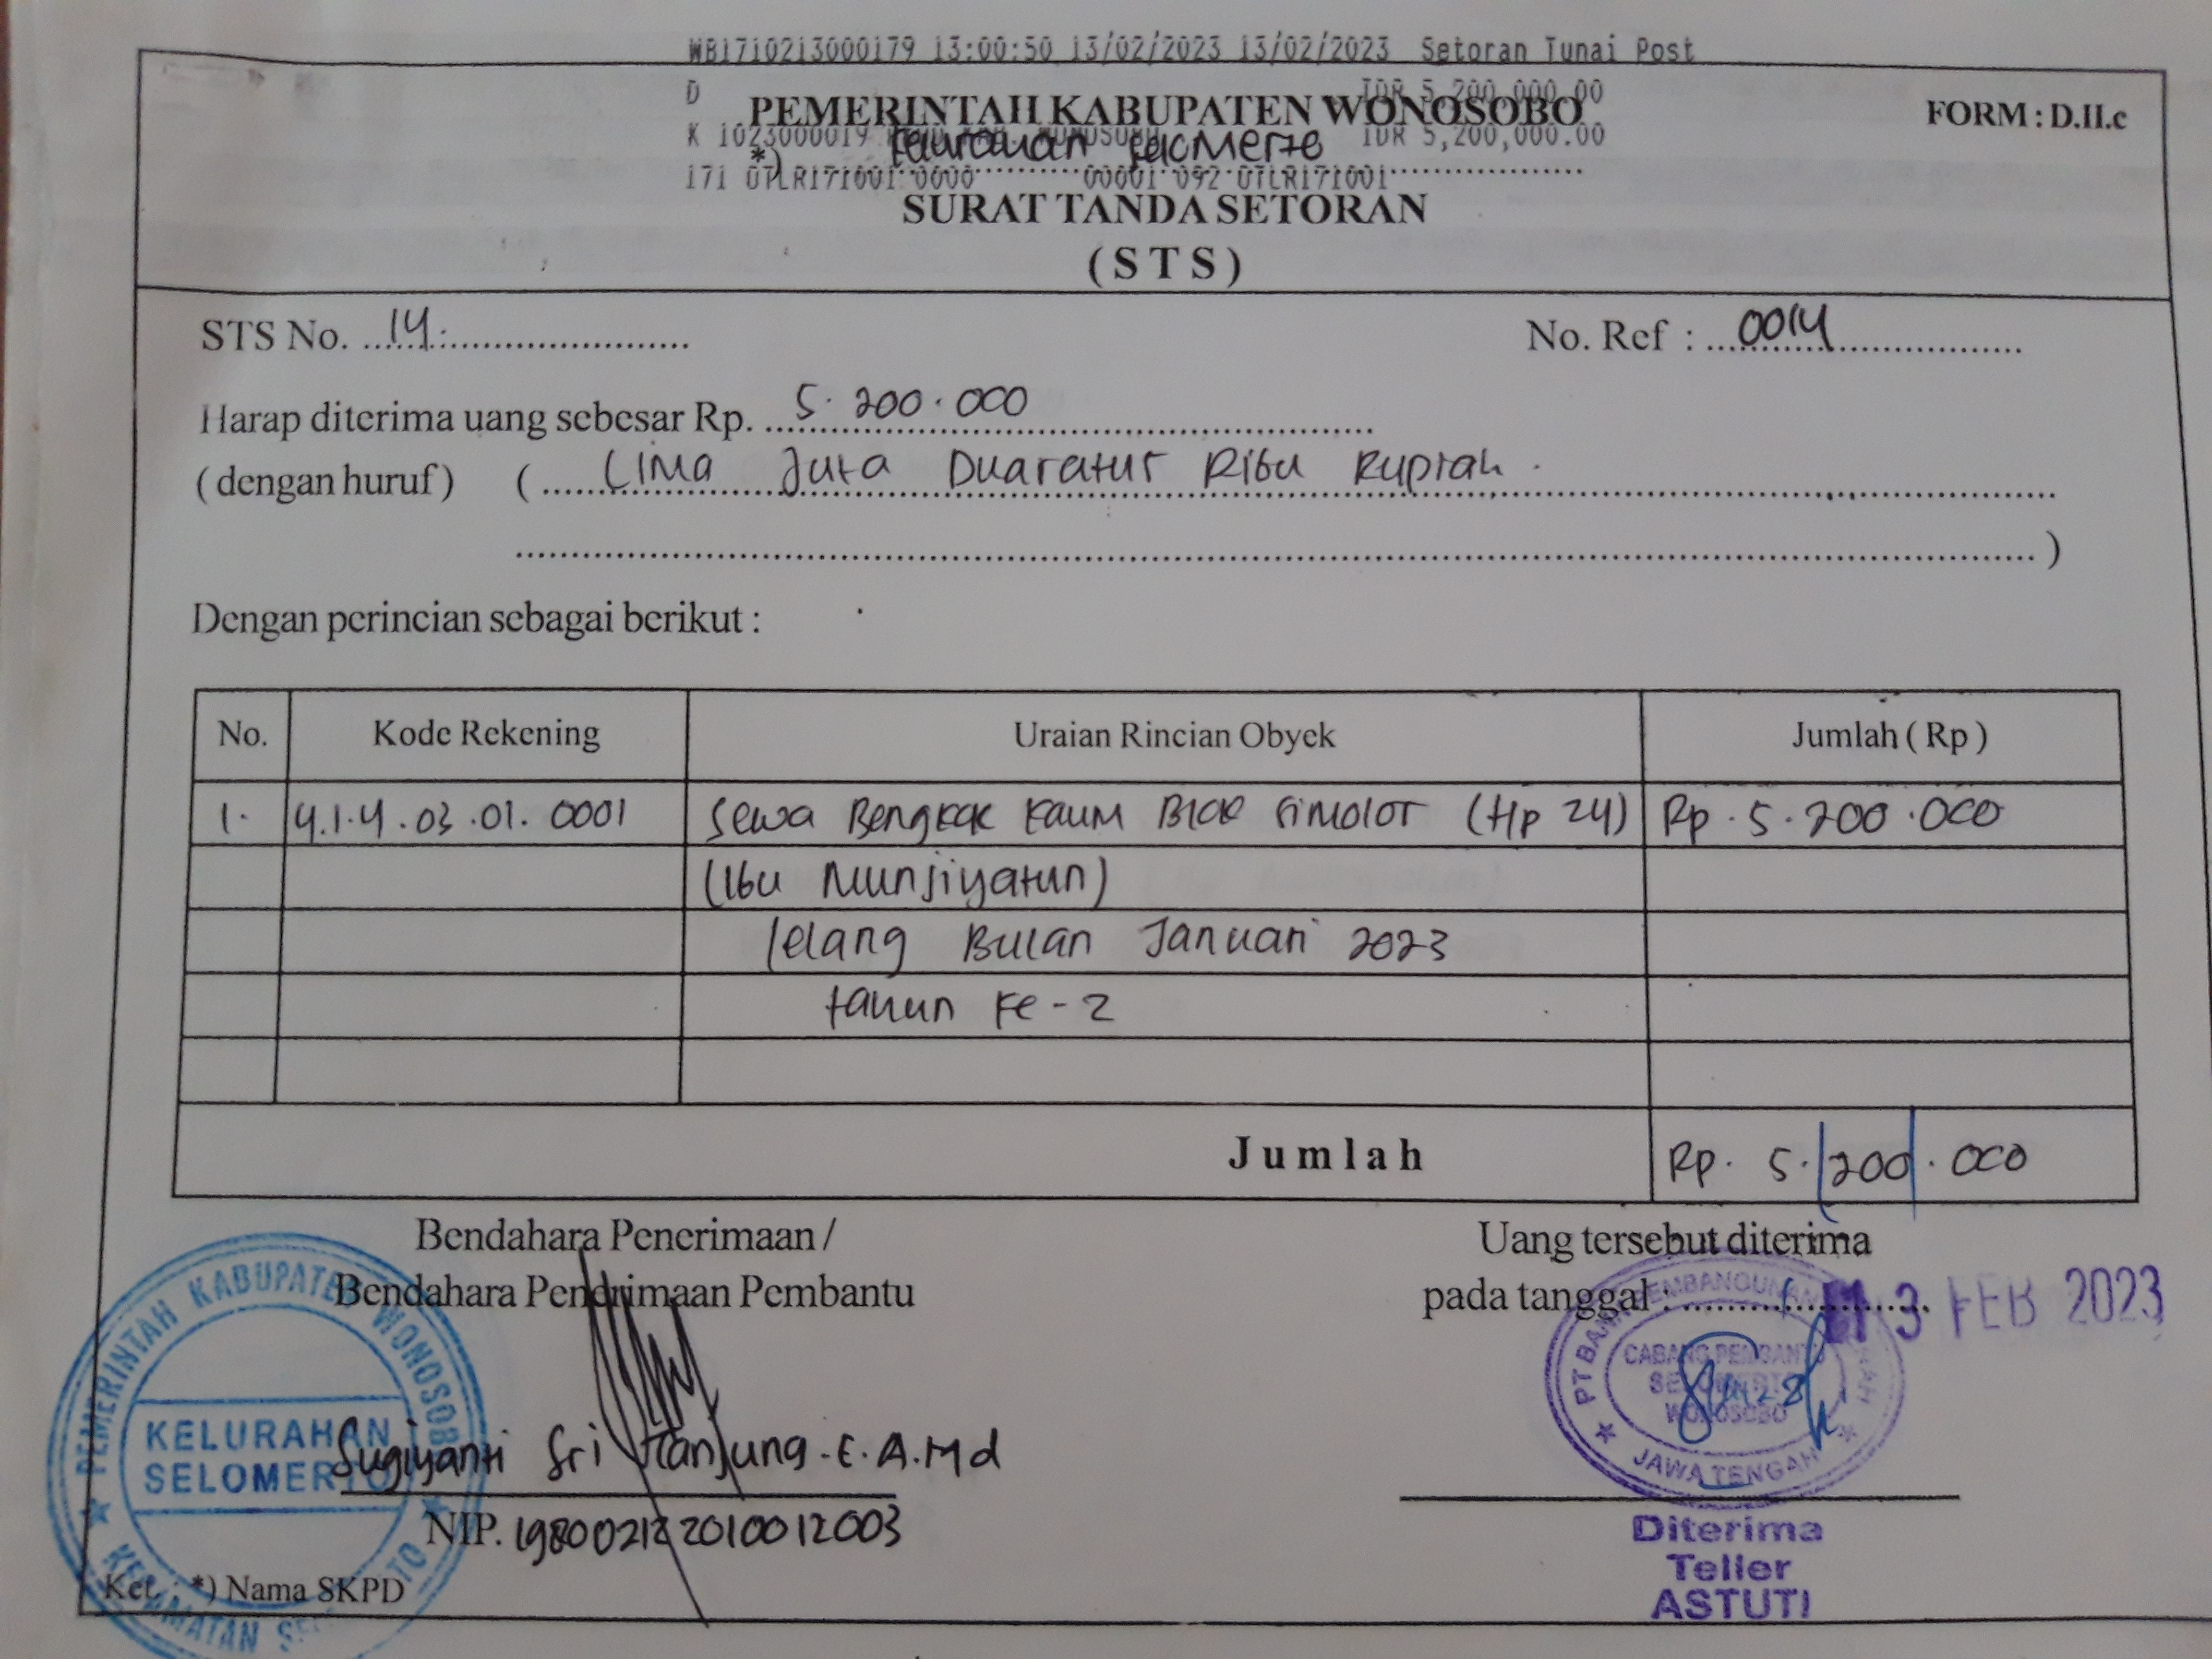 WB1710213000179 13:00:50 13/02/2023 13/02/2023 Setoran Tunai Post
D IDR 5,200,000.00
PEMERINTAH KABUPATEN WONOSOBO
FORM : D.II.c
K 1023000019 WONOSOBO IDR 5,200,000.00
*) Kelurahan Selomerto
171 0TLR171001 0000 00001 092 0TLR171001
SURAT TANDA SETORAN
( S T S )
STS No. 14. No. Ref : 0014
Harap diterima uang sebesar Rp. 5.200.000
( dengan huruf ) ( Lima Juta Duaratus Ribu Rupiah.
)
Dengan perincian sebagai berikut :
No. Kode Rekening Uraian Rincian Obyek Jumlah ( Rp )
1. 4.1.4.03.01.0001 Sewa Bengkok Kaum Blok Simolot (Hp 24) Rp. 5.200.000
(Ibu Munjiyatun)
lelang Bulan Januari 2023
tahun ke-2
Jumlah Rp. 5.200.000
Bendahara Penerimaan /
Bendahara Penerimaan Pembantu
Uang tersebut diterima
pada tanggal : 13 FEB 2023
PEMERINTAH KABUPATEN WONOSOBO
KELURAHAN
SELOMERTO
KECAMATAN SELOMERTO
Sugiyanti Sri Tanjung.E.A.Md
NIP. 198002122010012003
Ket. : *) Nama SKPD
PT BANK PEMBANGUNAN
CABANG PEMBANTU
SELOMERTO
WONOSOBO
JAWA TENGAH
Diterima
Teller
ASTUTI